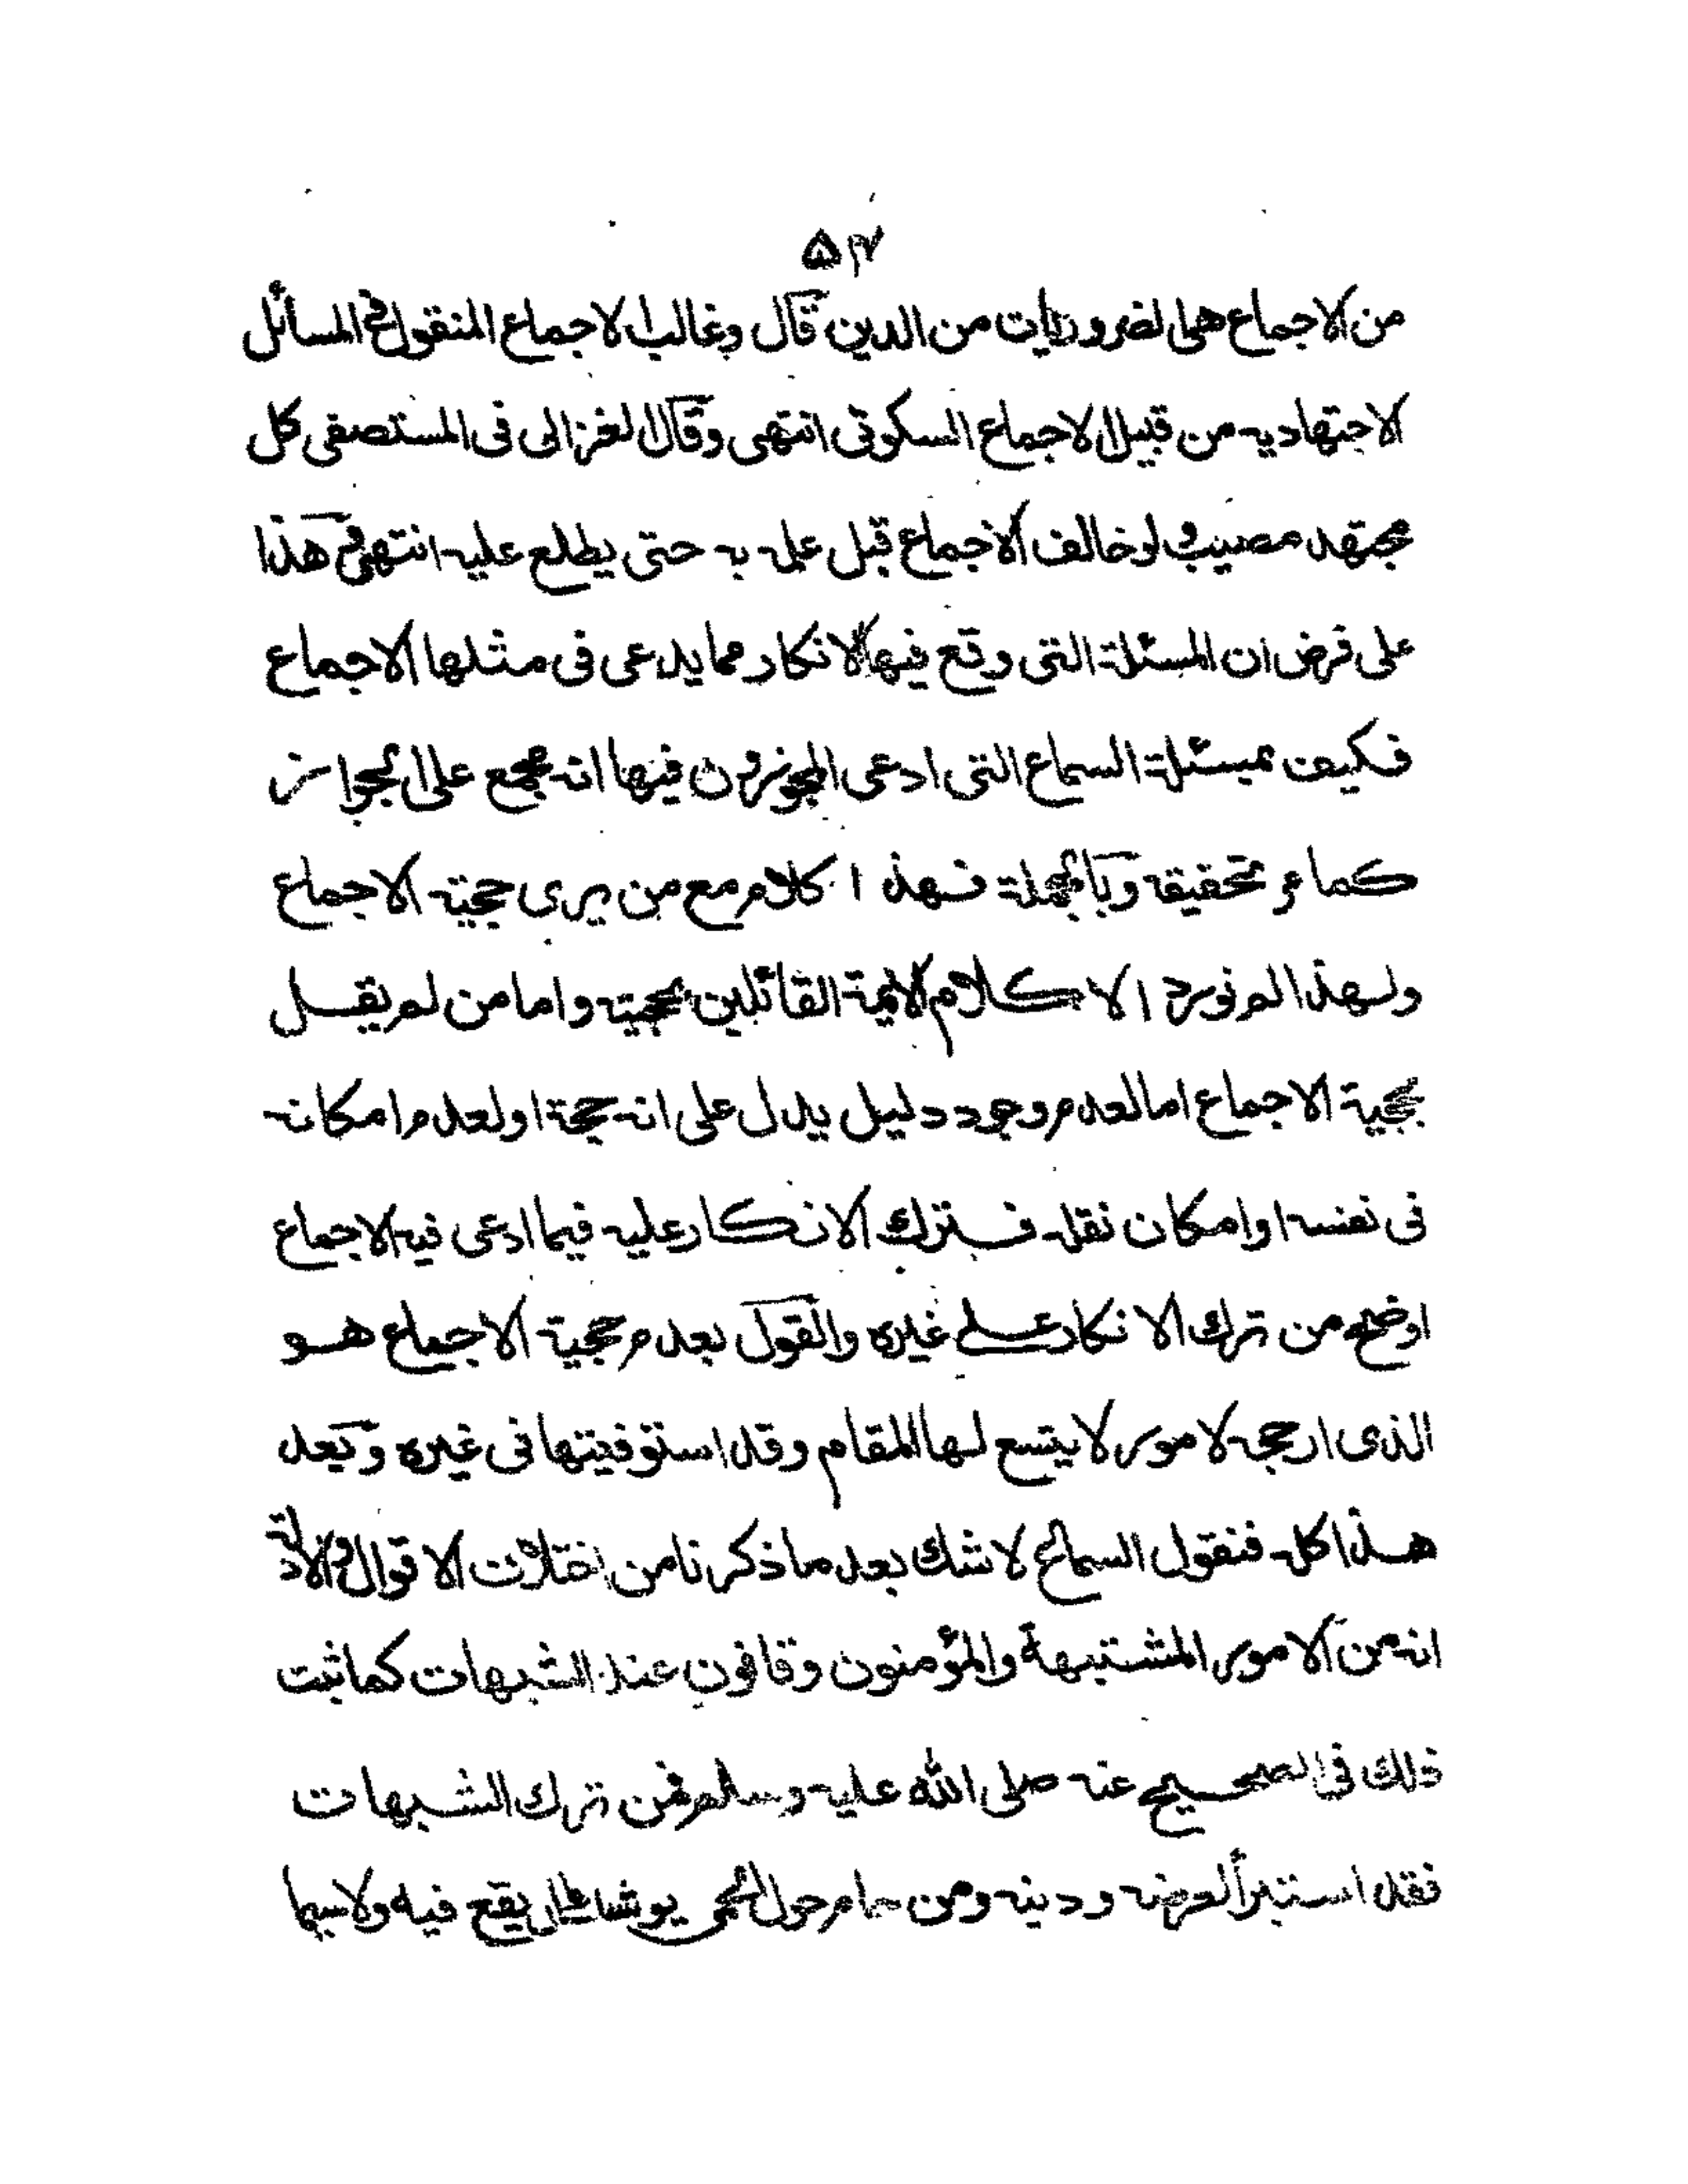 ۵۴
من الاجماع هى الضروريات من الدين قال وغالب الاجماع المنقول فى المسائل
الاجتهاديه من قبيل الاجماع السكوتى انتهى وقال الغزالى فى المستصفى كل
مجتهد مصيب ولو خالف الاجماع قبل علمه به حتى يطلع عليه انتهى وهذا
على فرض ان المسئلة التى وقع فيها الانكار مما يدعى فى مثلها الاجماع
فكيف بمسئلة السماع التى ادعى المجوزون فيها انه مجمع على الجواز
كما مر تحقيقه وبالجملة فهذا كلام مع من يرى حجية الاجماع
ولهذا لم نورد الا كلام الايمة القائلين بحجيته واما من لم يقل
بحجية الاجماع اما لعدم وجود دليل يدل على انه حجة او لعدم امكانه
فى نفسه او امكان نقله فترك الانكار عليه فيما ادعى فيه الاجماع
اوضح من ترك الانكار على غيره والقول بعدم حجية الاجماع هو
الذى ارجحه لامور لا يتسع لها المقام وقد استوفيتها فى غيره وبعد
هذا كله فنقول السماع لا شك بعد ما ذكرنا من اختلاف الاقوال والادلة
انه من الامور المشتبهة والمؤمنون وقافون عند الشبهات كما ثبت
ذلك فى الصحيح عنه صلى الله عليه وسلم فمن ترك الشبهات
فقد استبرأ لعرضه ودينه ومن حام حول الحمى يوشك ان يقع فيه ولاسيما